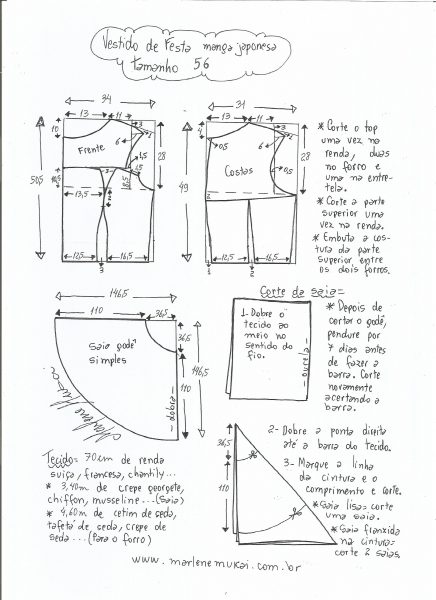 Vestido de Festa manga japonesa
tamanho 56
34
13
11
3
10
6
28
Frente
50,5
1,5
1,5
18,5
13,5
2
12,5
16,5
3
31
13
11
4
3
0,5
6
28
Costas
0,5
49
12,5
16,5
3
2
2
* Corte o top
uma vez na
renda, duas
no forro e
uma na entre-
tela.
* Corte a parte
superior uma
vez na renda.
* Embuta a cos-
tura da parte
superior entre
os dois forros.
146,5
110
36,5
36,5
146,5
110
Saia godê
simples
- dobra -
Marlene Mukai
Corte da saia=
1- Dobre o
tecido ao
meio no
sentido do
fio.
- ourela -
* Depois de
cortar o godê,
pendure por
7 dias antes
de fazer a
barra. Corte
novamente
acertando a
barra.
Tecido= 70cm de renda
suiça, francesa, chantily...
* 3,40m de crepe georgete,
chiffon, musseline...(Saia)
* 4,60m de cetim de seda,
tafetá de seda, crepe de
seda...(Para o forro)
36,5
110
2- Dobre a ponta direita
até a barra do tecido.
3- Marque a linha
da cintura e o
comprimento e corte.
* Saia lisa= corte
uma saia.
* Saia franzida
na cintura=
corte 2 saias.
www.marlenemukai.com.br